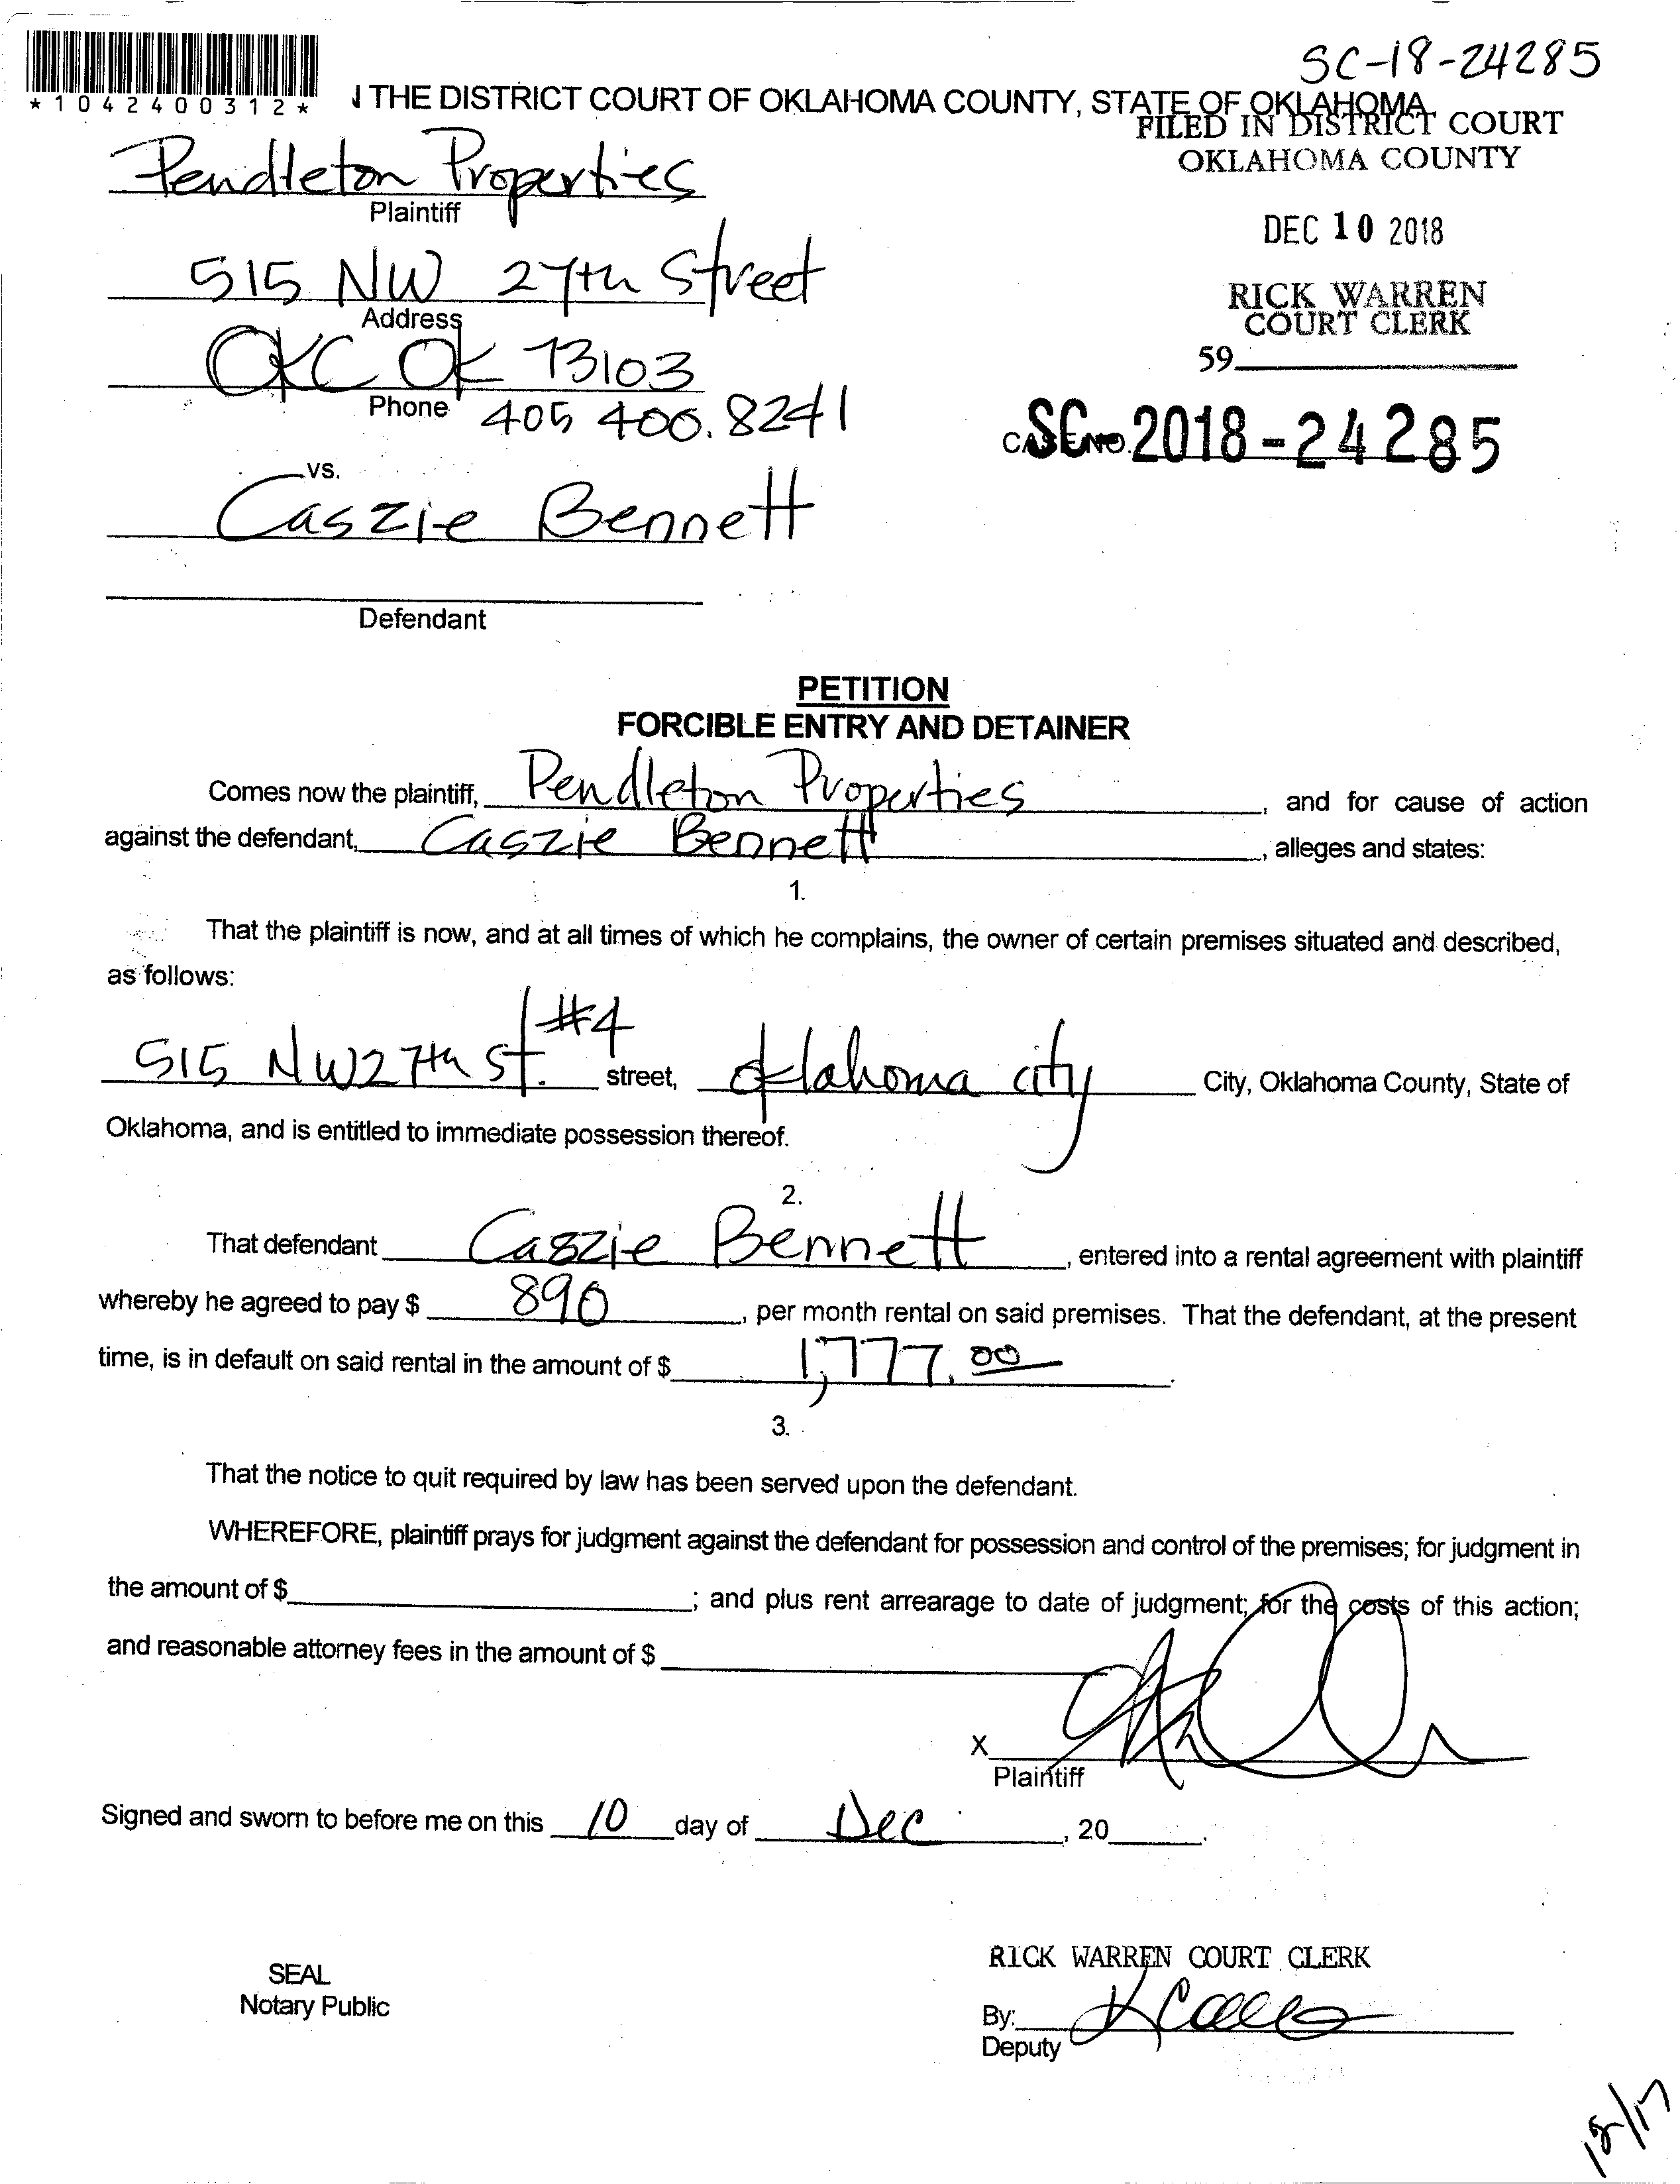 SC-18-24285
*1042400312*
THE DISTRICT COURT OF OKLAHOMA COUNTY, STATE OF OKLAHOMA
FILED IN DISTRICT COURT
OKLAHOMA COUNTY
Pendleton Properties
Plaintiff
DEC 10 2018
515 NW 27th Street
Address
RICK WARREN
COURT CLERK
OKC OK 73103
59
Phone 405 400.8241
CASE NO. SC-2018-24285
vs.
Caszie Bennett
Defendant
PETITION
FORCIBLE ENTRY AND DETAINER
Comes now the plaintiff, Pendleton Properties, and for cause of action
against the defendant, Caszie Bennett, alleges and states:
1.
That the plaintiff is now, and at all times of which he complains, the owner of certain premises situated and described,
as follows:
515 NW27th St. #4 street, Oklahoma city City, Oklahoma County, State of
Oklahoma, and is entitled to immediate possession thereof.
2.
That defendant Caszie Bennett, entered into a rental agreement with plaintiff
whereby he agreed to pay $ 890, per month rental on said premises. That the defendant, at the present
time, is in default on said rental in the amount of $ 1,777.00.
3.
That the notice to quit required by law has been served upon the defendant.
WHEREFORE, plaintiff prays for judgment against the defendant for possession and control of the premises; for judgment in
the amount of $; and plus rent arrearage to date of judgment; for the costs of this action;
and reasonable attorney fees in the amount of $
X
Plaintiff
Signed and sworn to before me on this 10 day of Dec, 20.
RICK WARREN COURT CLERK
SEAL
Notary Public
By:
Deputy
12/17